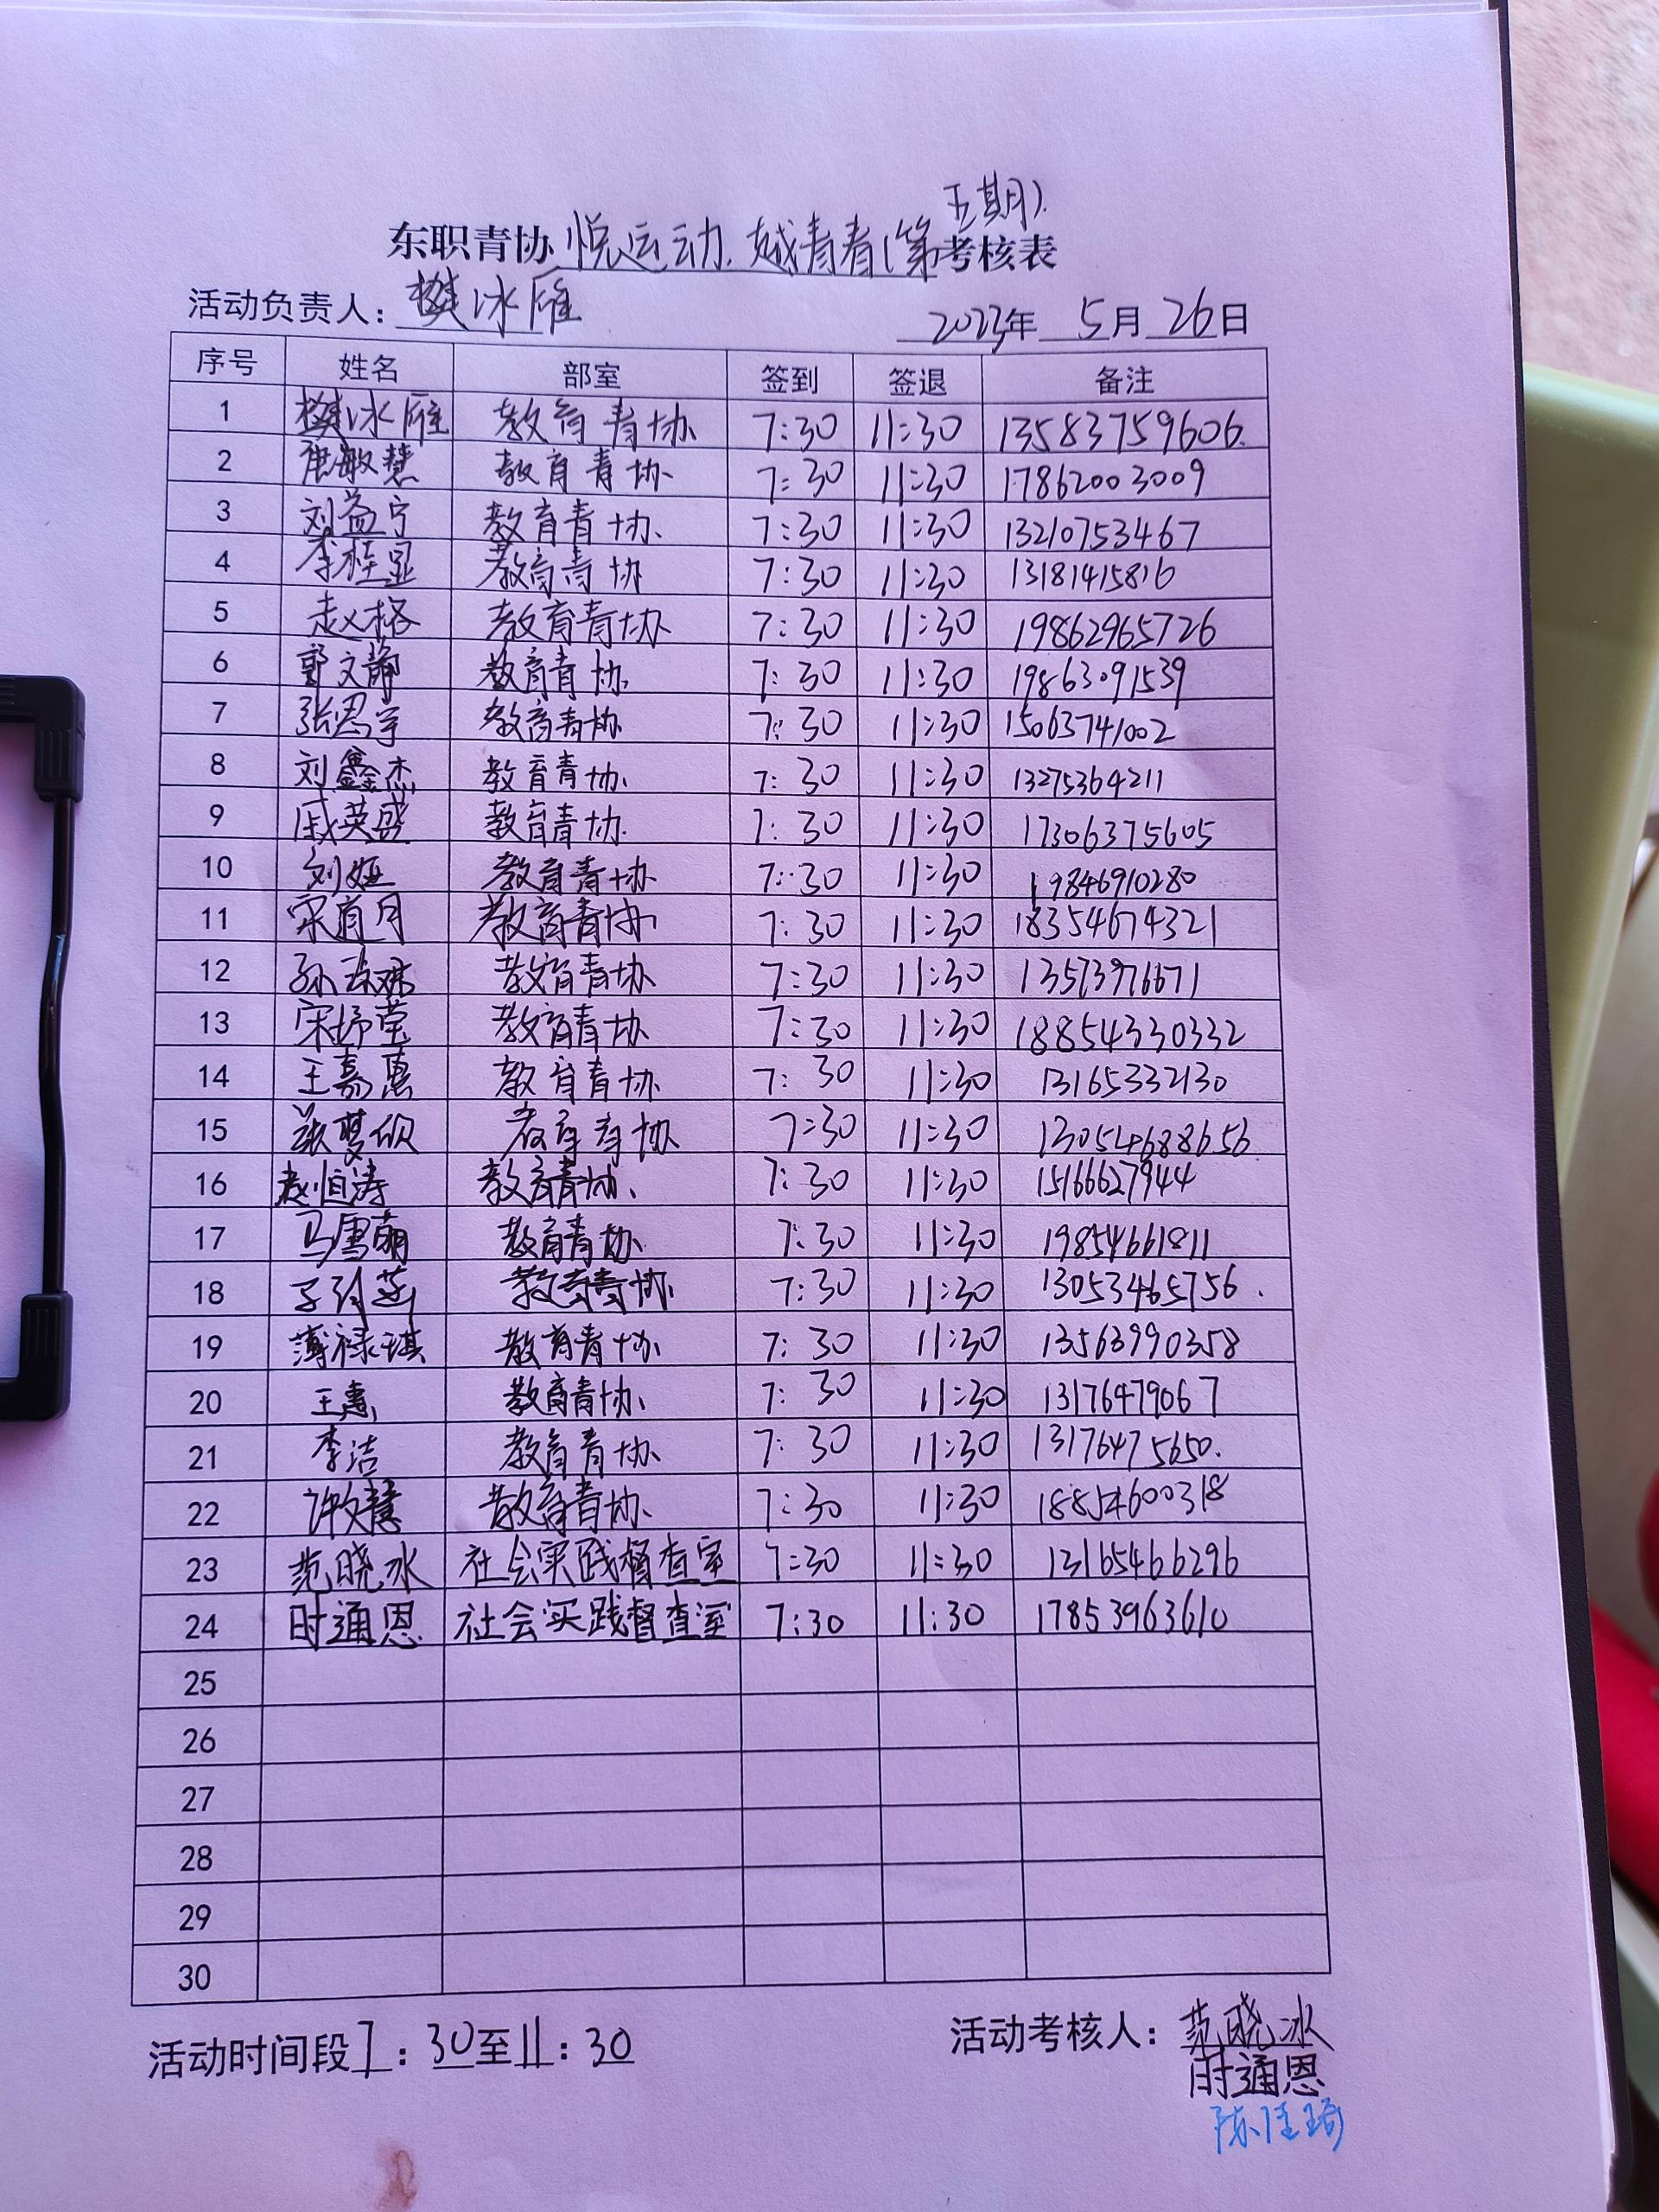 五期)
东职青协 悦运动.越青春(第 考核表
活动负责人: 樊冰雁
2023年 5月 26日
序号 姓名 部室 签到 签退 备注
1 樊冰雁 教育青协 7:30 11:30 13583759606.
2 唐敏慧 教育青协 7:30 11:30 17862003009
3 刘益宁 教育青协 7:30 11:30 13210753467
4 李桂显 教育青协 7:30 11:30 13181415816
5 赵格 教育青协 7:30 11:30 19862965726
6 郭文静 教育青协 7:30 11:30 19863091539
7 张思宇 教育青协 7:30 11:30 15063741002
8 刘鑫杰 教育青协 7:30 11:30 13275364211
9 戚英盛 教育青协 7:30 11:30 17306375605
10 刘娅 教育青协 7:30 11:30 19846910280
11 宋肖月 教育青协 7:30 11:30 18354674321
12 教育青协 7:30 11:30 13573976671
13 宋妤莹 教育青协 7:30 11:30 18854330332
14 王嘉惠 教育青协 7:30 11:30 13165332130
15 张梦欣 教育青协 7:30 11:30
16 赵恒涛 教育青协 7:30 11:30 15166627944
17 马雪萌 教育青协 7:30 11:30 19854661811
18 教育青协 7:30 11:30 13053465756.
19 薄禄琪 教育青协 7:30 11:30 13563990358
20 王惠 教育青协 7:30 11:30 13176479067
21 李洁 教育青协 7:30 11:30 13176475650.
22 许文慧 教育青协 7:30 11:30 18854600318
23 范晓冰 社会实践督查室 7:30 11:30 13165466296
24 时通恩 社会实践督查室 7:30 11:30 17853963610
25
26
27
28
29
30
活动时间段 7:30至11:30
活动考核人: 范晓冰
时通恩
陈佳琦